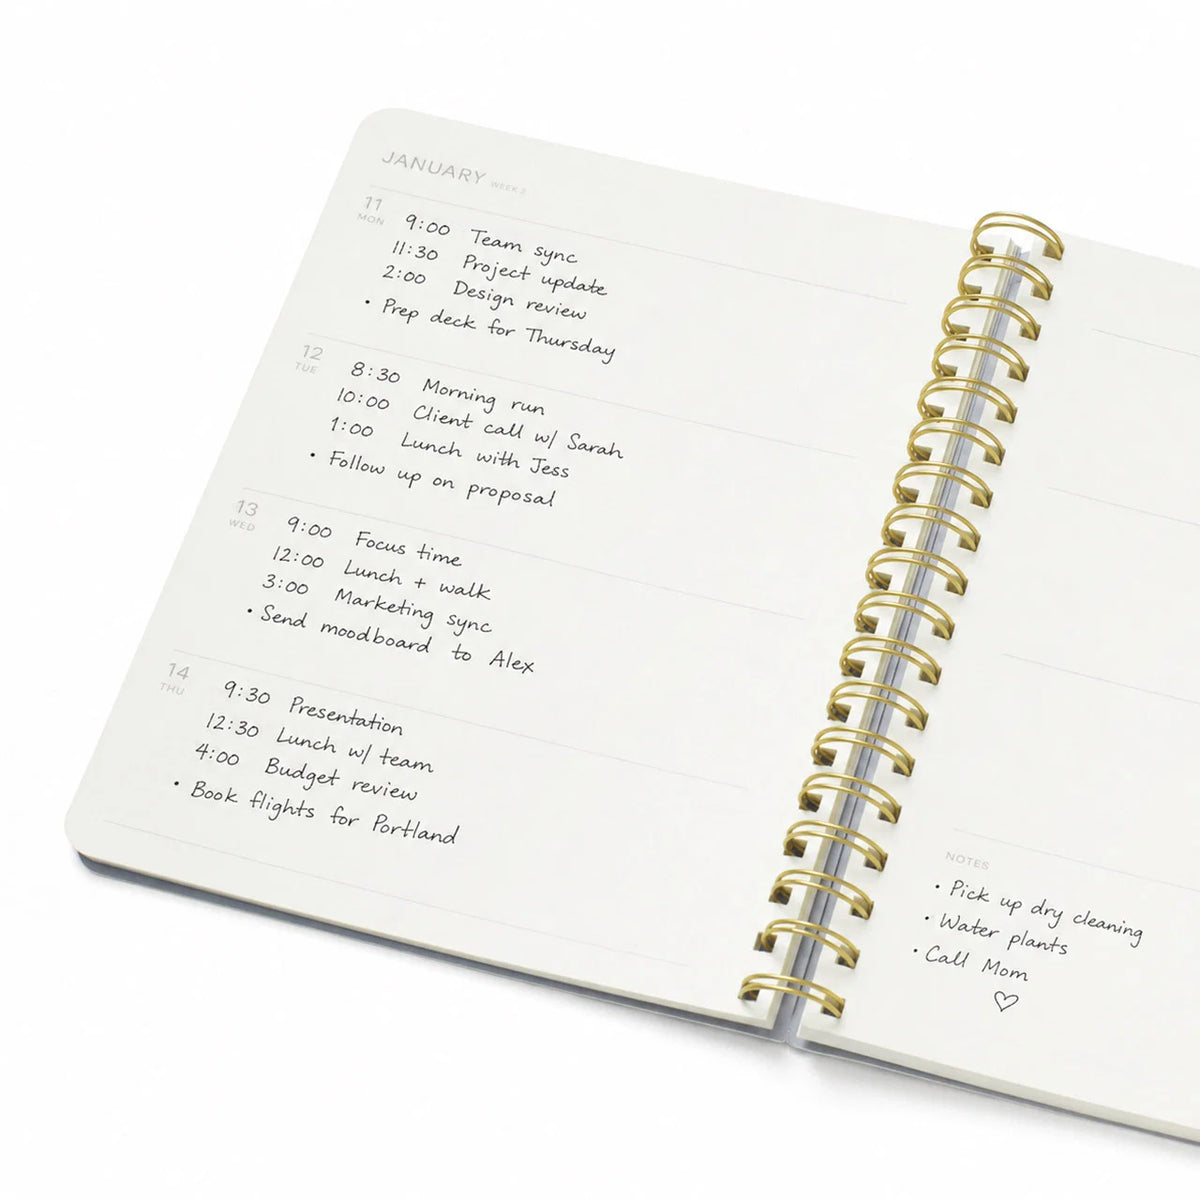 JANUARY WEEK 2
11
MON
9:00 Team sync
11:30 Project update
2:00 Design review
• Prep deck for Thursday
12
TUE
8:30 Morning run
10:00 Client call w/ Sarah
1:00 Lunch with Jess
• Follow up on proposal
13
WED
9:00 Focus time
12:00 Lunch + walk
3:00 Marketing sync
• Send moodboard to Alex
14
THU
9:30 Presentation
12:30 Lunch w/ team
4:00 Budget review
• Book flights for Portland
NOTES
• Pick up dry cleaning
• Water plants
• Call Mom
♡